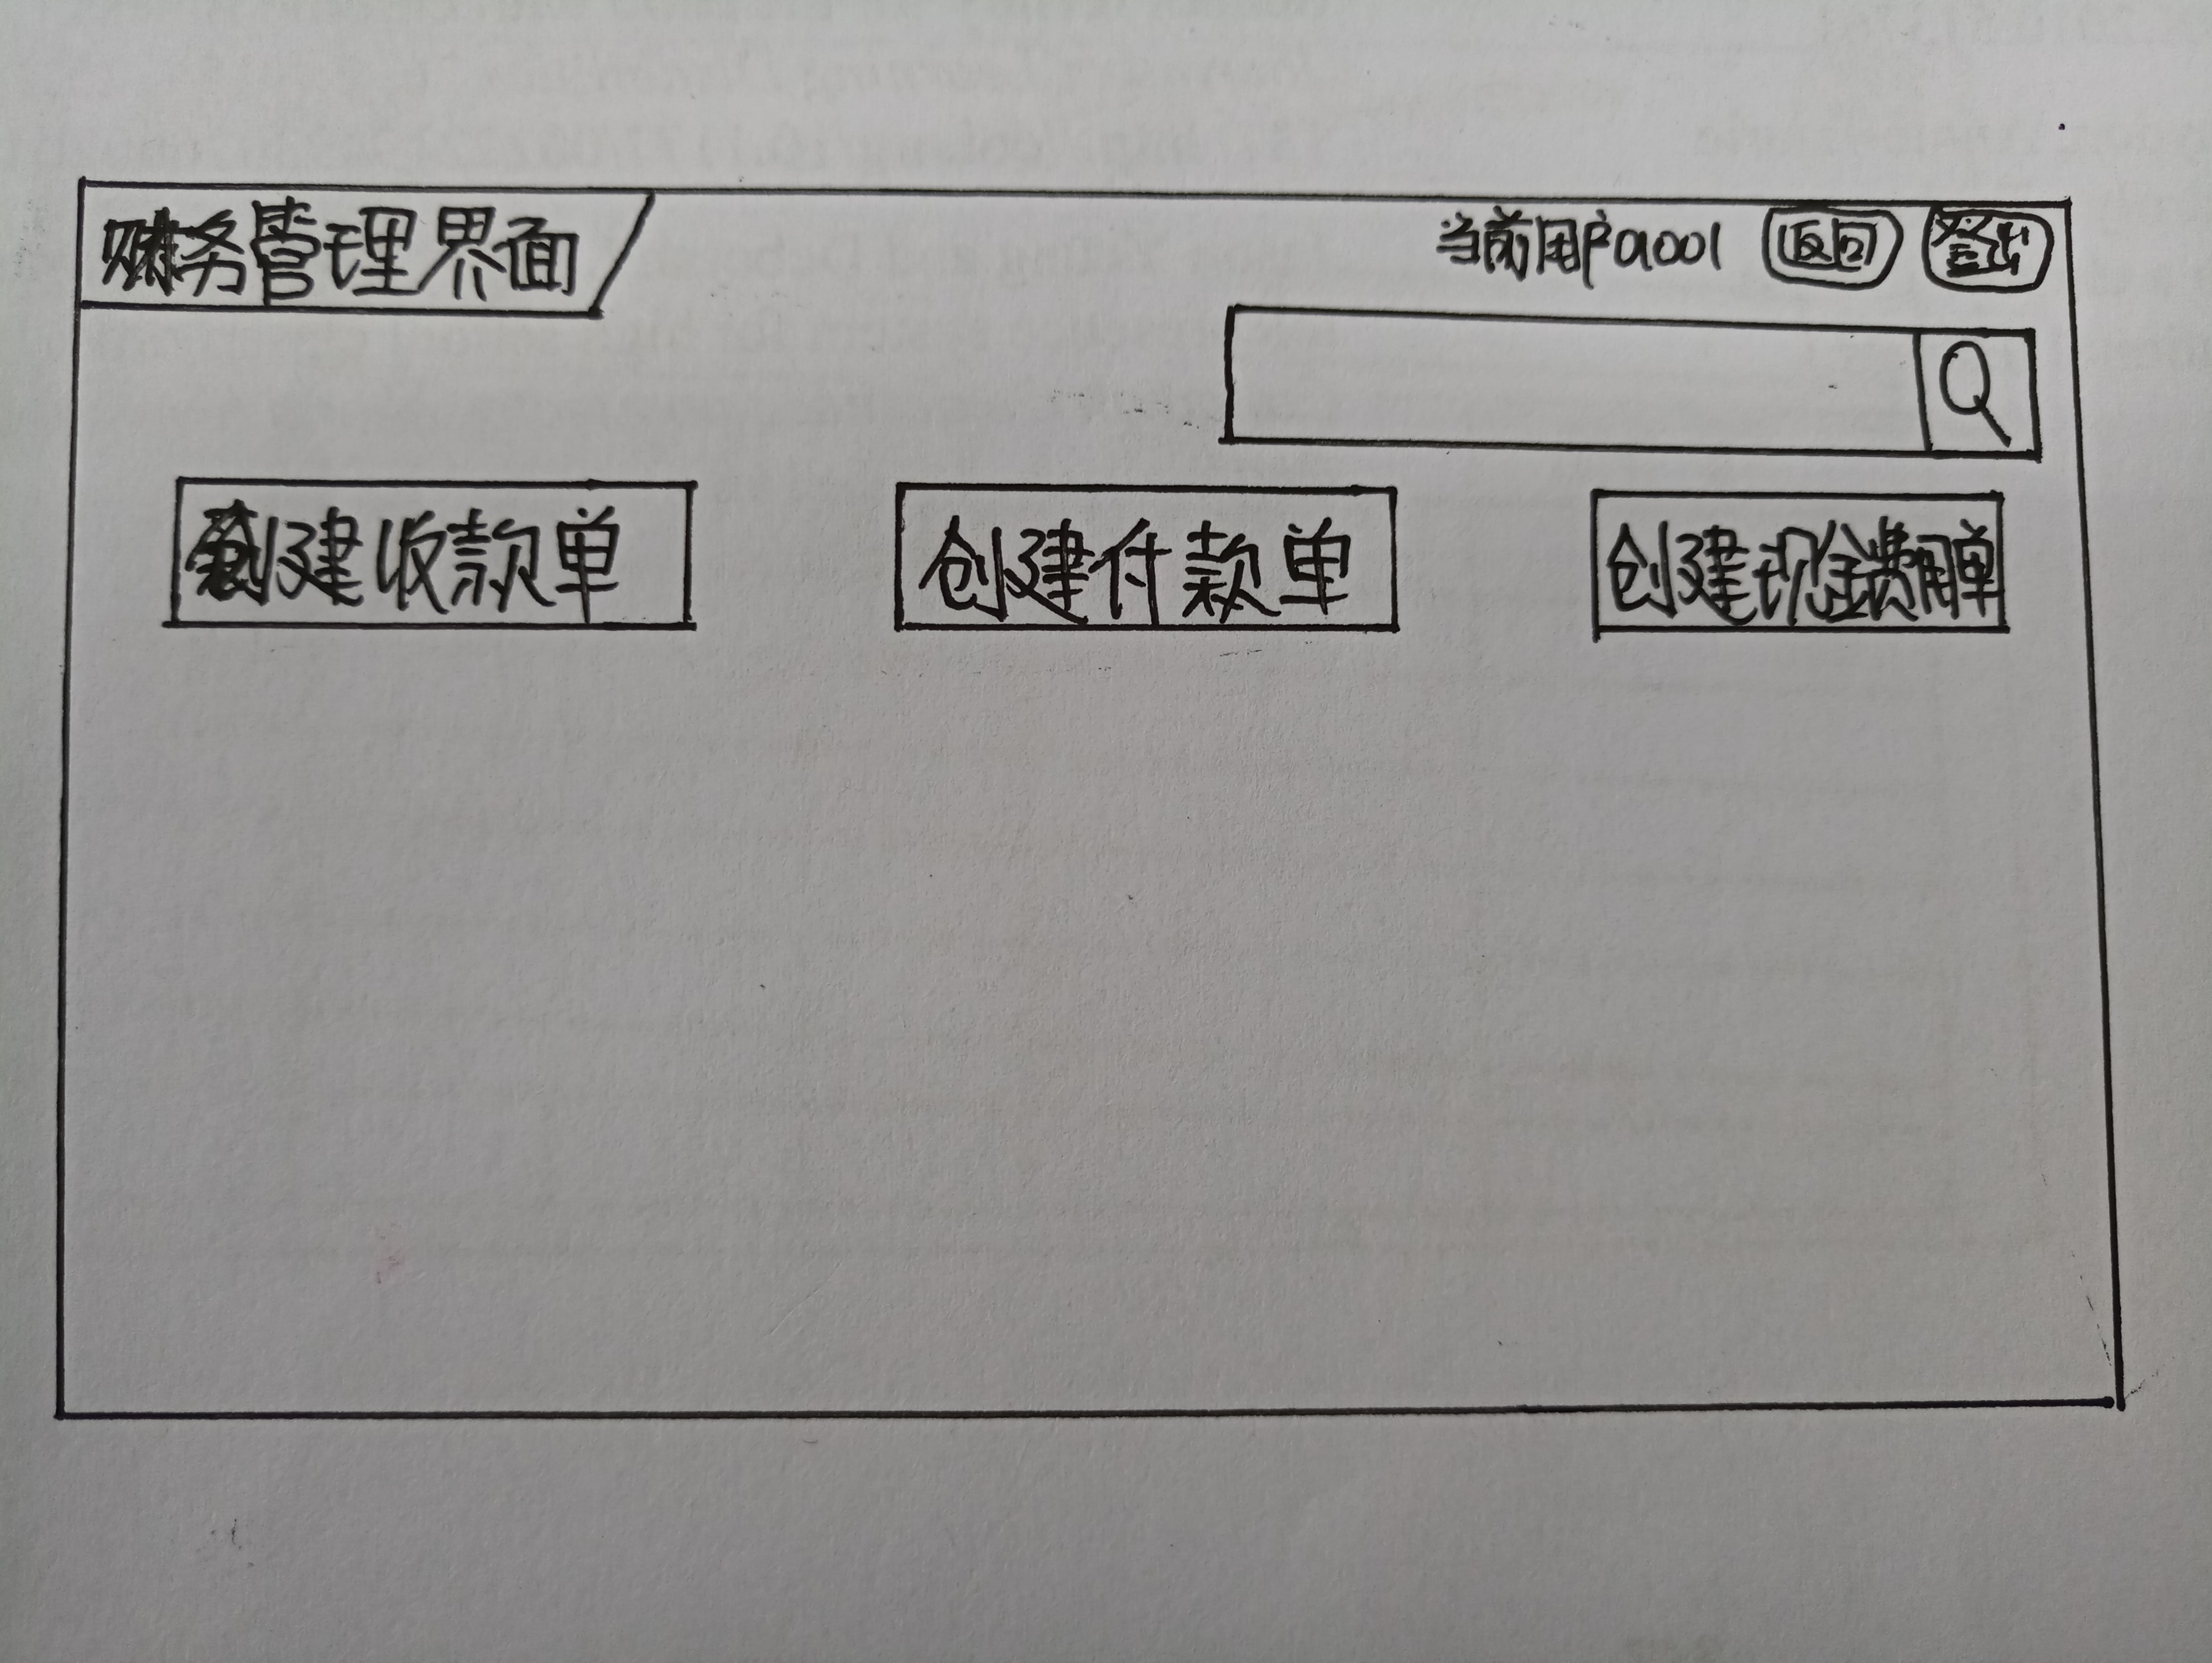 财务管理界面
当前用户a001 返回 登出
创建收款单
创建付款单
创建现金费用单